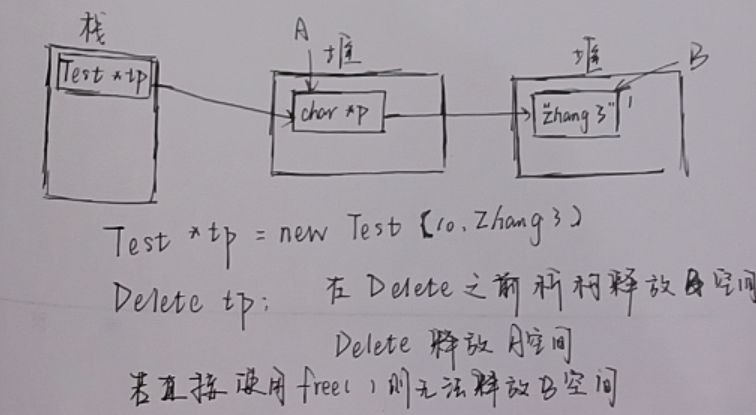 栈
A
堆
堆
B
Test *tp
char *p
"zhang3"
Test *tp = new Test (10, zhang3)
Delete tp; 在 Delete 之前析构释放B空间
Delete 释放A空间
若直接使用free()则无法释放B空间